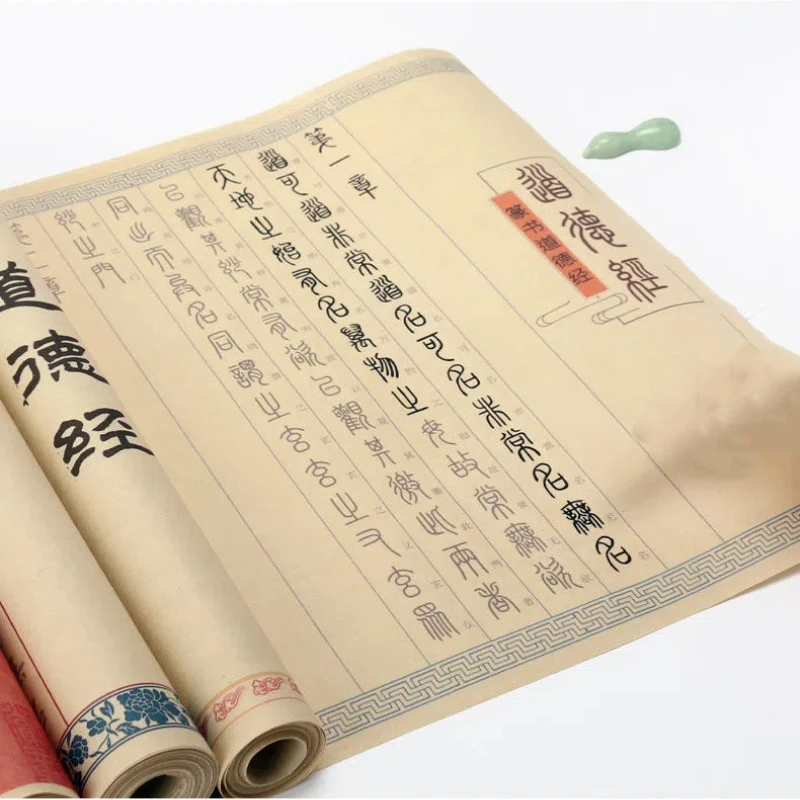 道德經
篆书道德经
第一章
道可道非常道名可名非常名無名
天地之始有名萬物之母故常無欲
以觀其妙常有欲以觀其徼此兩者
同出而異名同謂之玄玄之又玄眾
妙之門
第二章
道德经